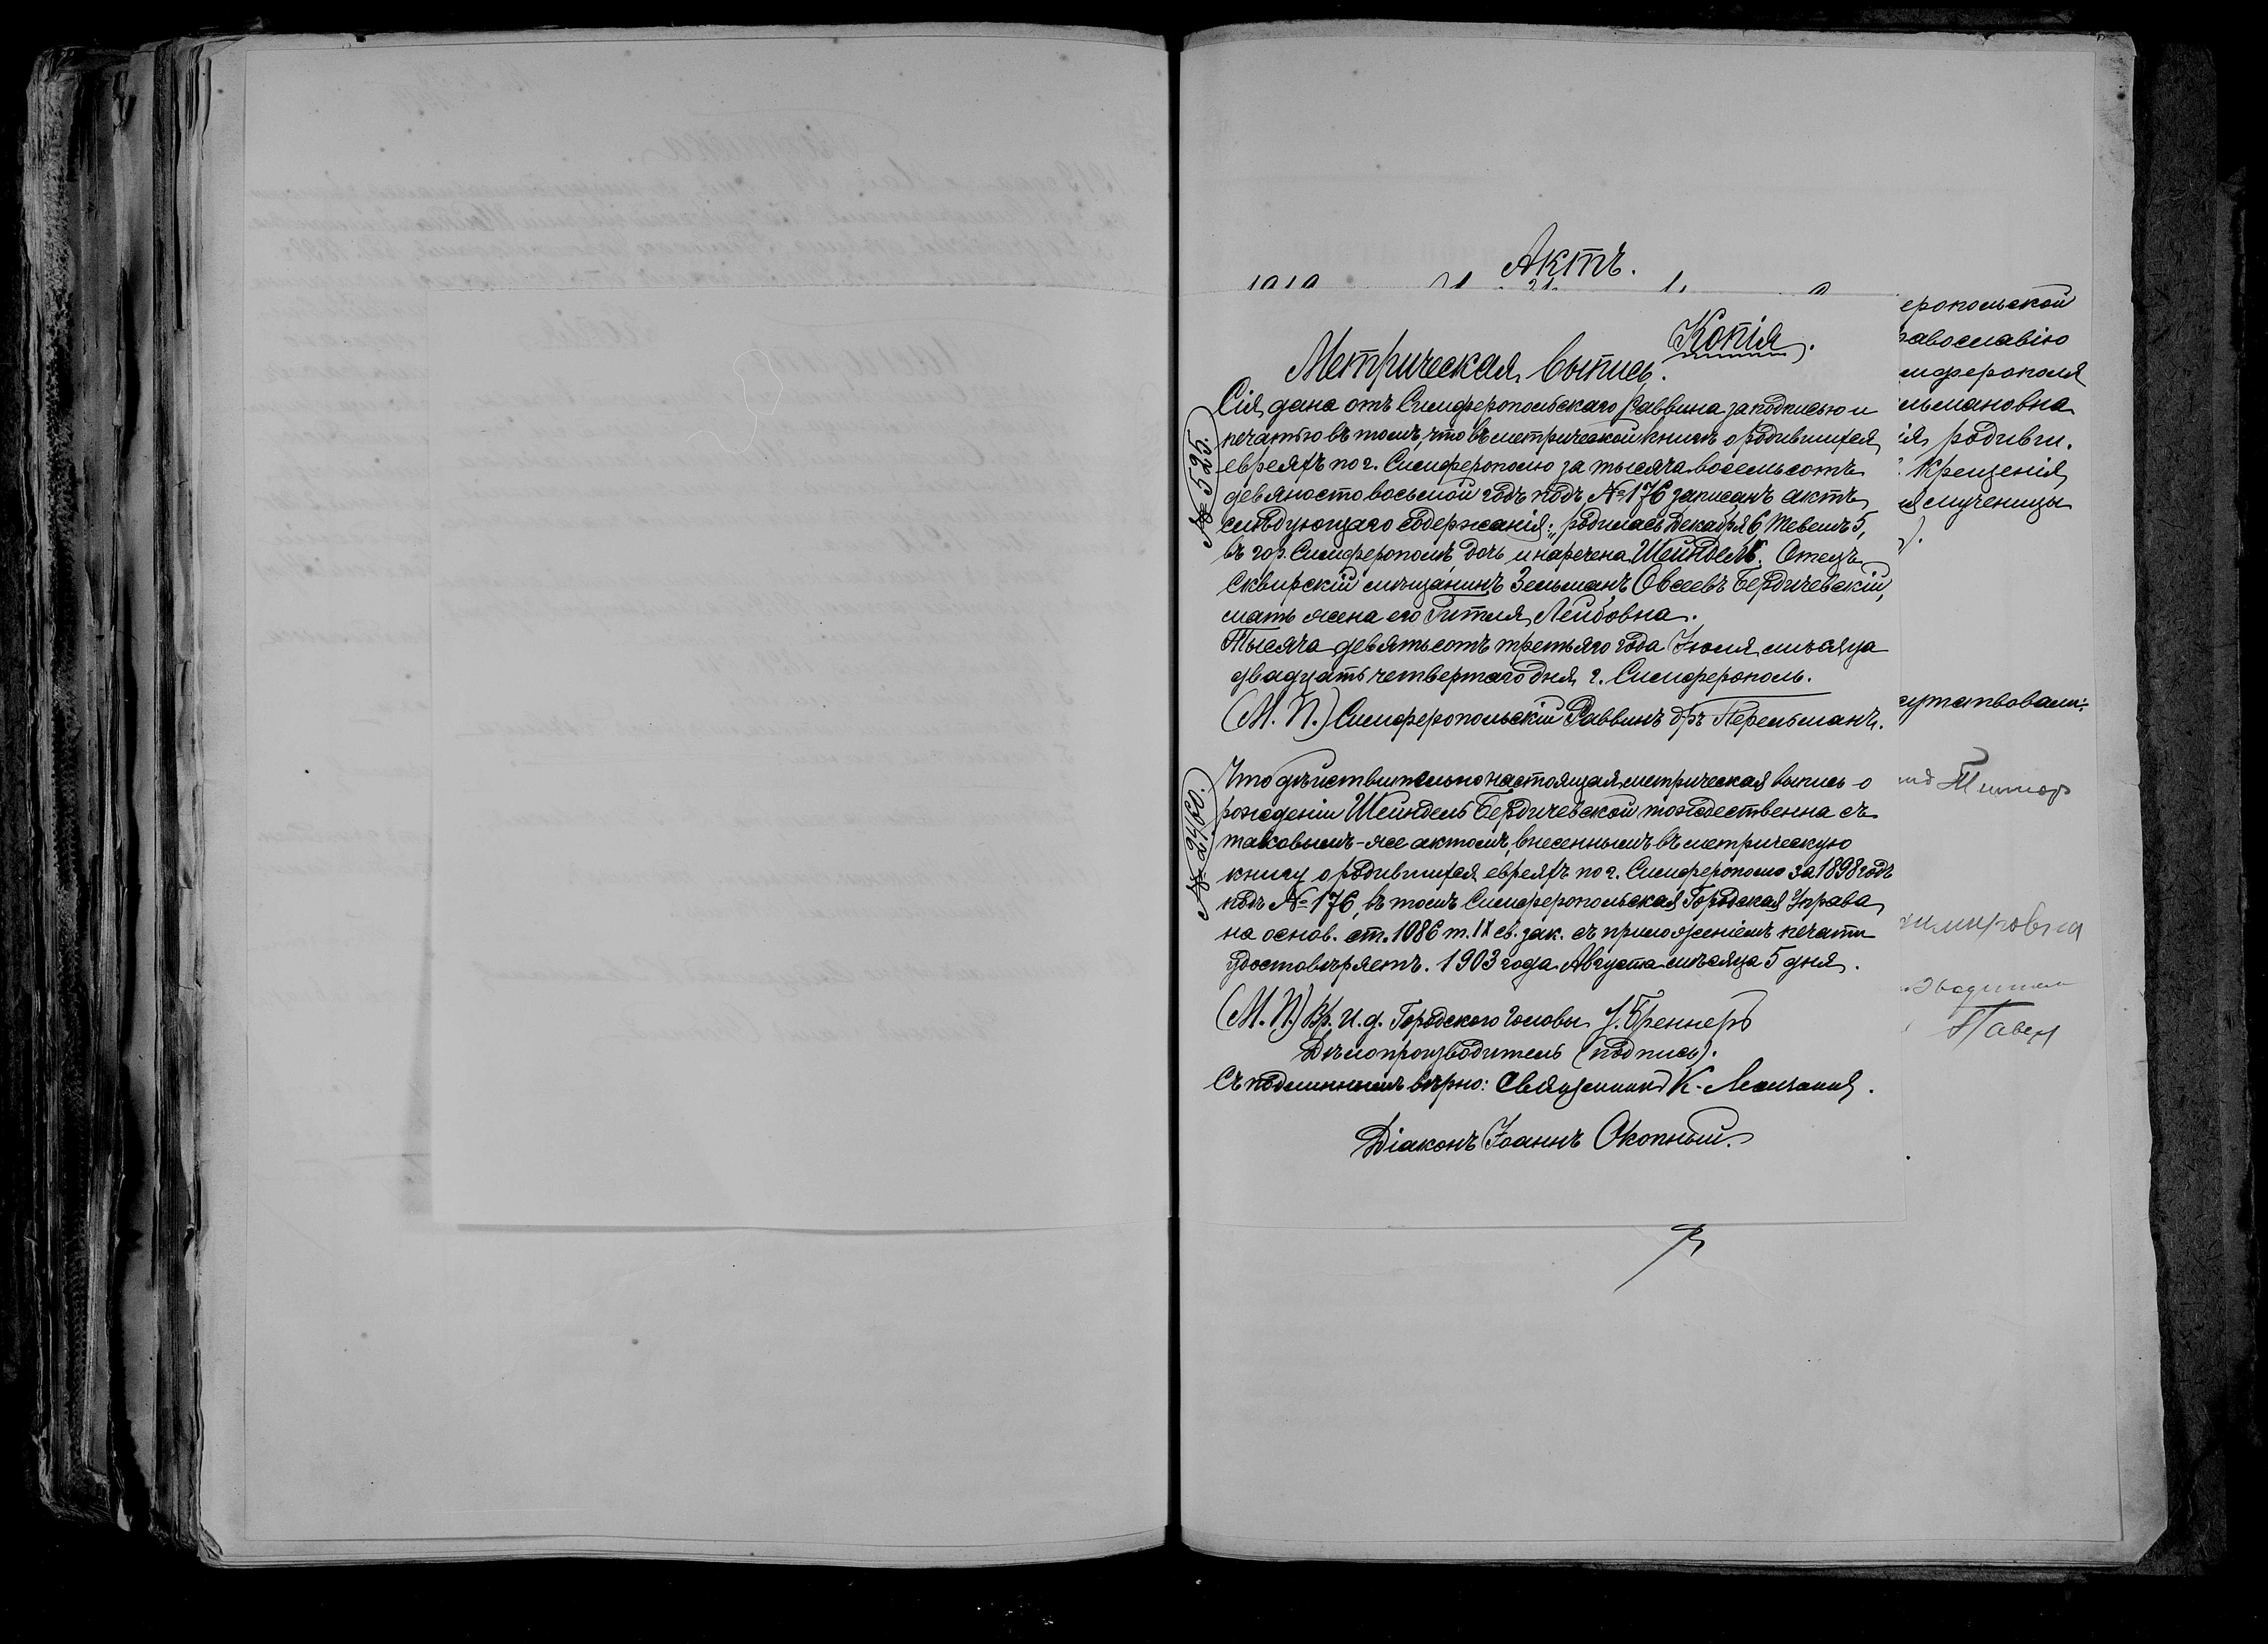 Актъ.
Копія.
Метрическая выпись.
№ 525.
Сія дана отъ Симферопольскаго Раввина за подписью и
печатью въ томъ, что въ метрической книгѣ о родившихся
евреяхъ по г. Симферополю за тысяча восемьсотъ
девяносто восьмой годъ подъ № 176, записанъ актъ
слѣдующаго содержанія: „родилась Декабря 6 Тевешъ 5,
въ гор. Симферополѣ дочь и наречена Шейндель. Отецъ
Сквирскій мѣщанинъ Зельманъ Овсеевъ Бердичевскій,
мать жена его Гитля Лейбовна.
Тысяча девятьсотъ третьяго года Іюля мѣсяца
двадцать четвертаго дня г. Симферополь.
(М. П.) Симферопольскій Раввинъ д-ръ Перельманъ.
№ 2460.
Что дѣйствительно настоящая метрическая выпись о
рожденіи Шейндель Бердичевской тождественна съ
таковымъ-же актомъ, внесеннымъ въ метрическую
книгу о родившихся евреяхъ по г. Симферополю за 1898 годъ
подъ № 176, въ томъ Симферопольская Городская Управа
на основ. ст. 1086 т. IX св. зак. съ приложеніемъ печати
удостовѣряетъ. 1903 года Августа мѣсяца 5 дня.
(М. П.) Вр. И. д. Городского Головы
Дѣлопроизводитель (подпись).
Съ подлиннымъ вѣрно: Священникъ К.
Діаконъ Іоаннъ Окопный.
еропольской
равославію
имферополя
ельмановна
ія, родивш.
Крещенія
мученицы
сутствовали:
Павел